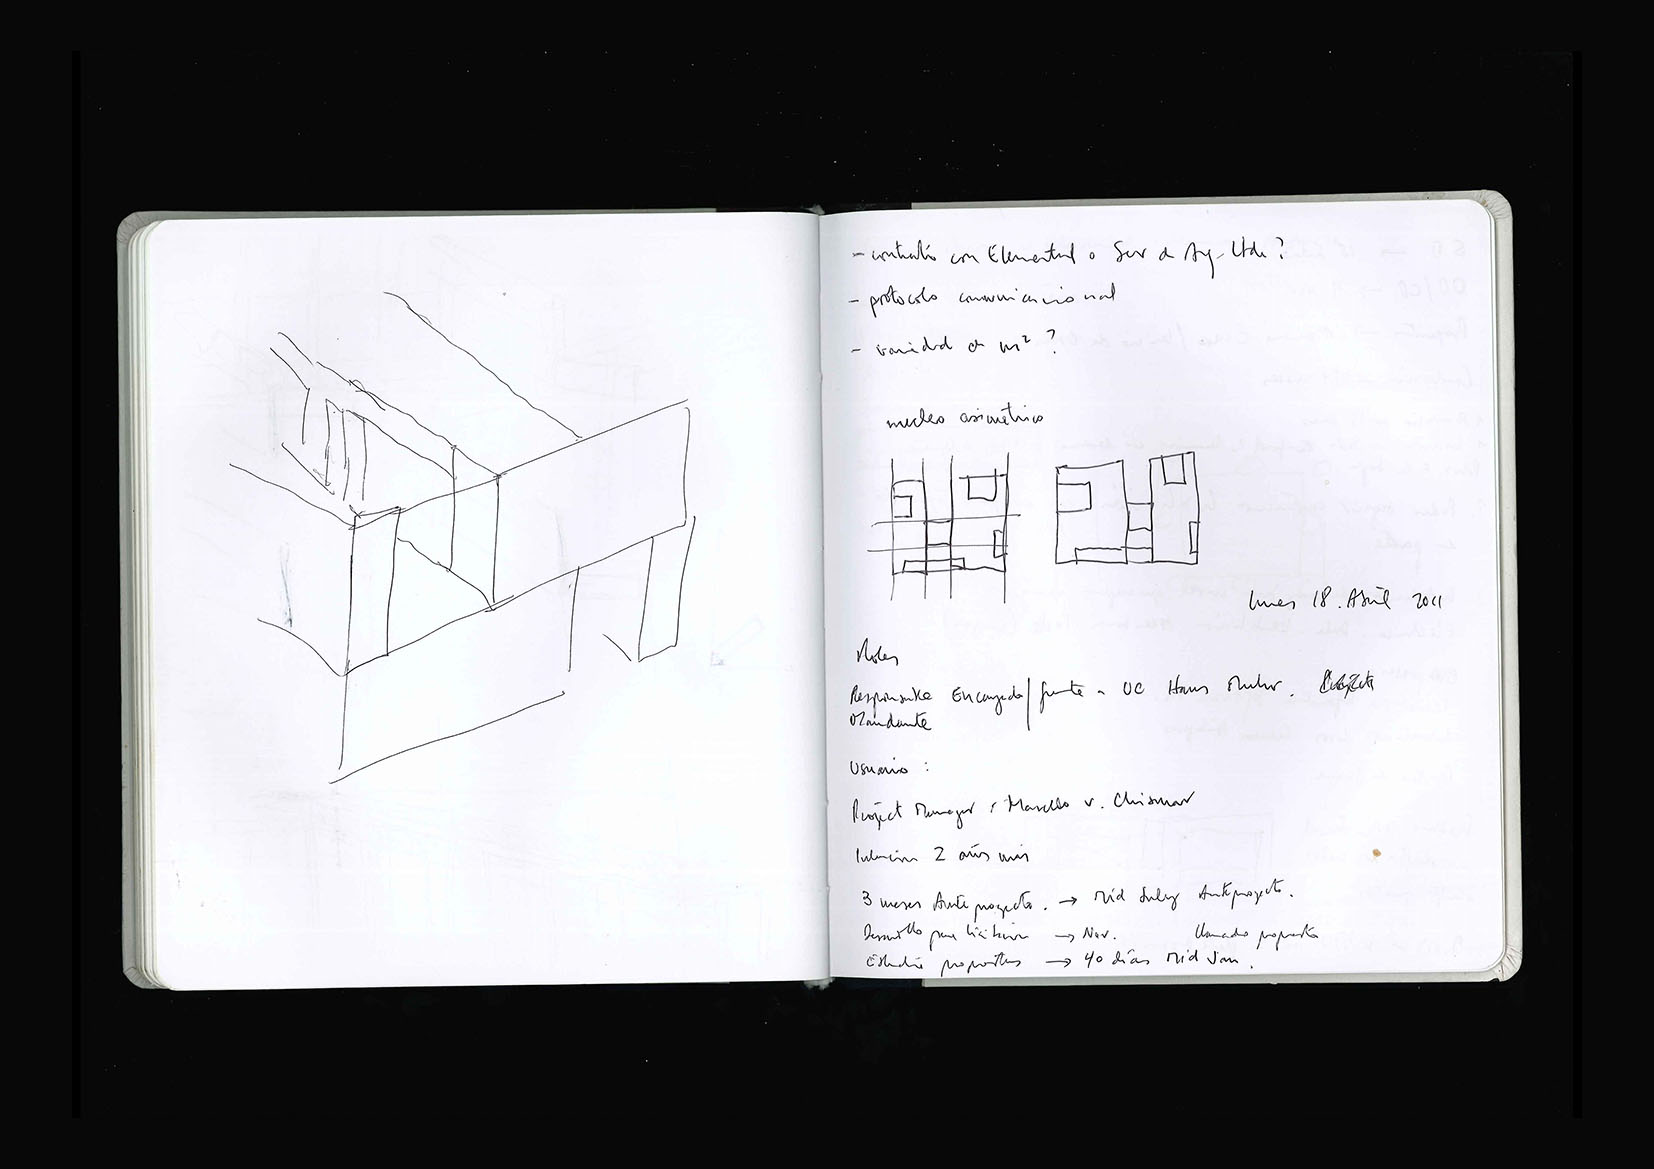 - contrato con Elemental o Serv de Arq. Ltda?
- protocolo comunicacional
- variedad de m²?
nucleo asimétrico
lunes 18. Abril 2011
Roles
Responsable Encargado / frente a UC Hans Muhr.
Mandante
Usuario :
Project Manager : Marcello v. Chismar
2 años más
3 meses Anteproyecto. → Mid July Anteproyecto.
Desarrollo para licitación → Nov. llamado propuesta
Estudio propuestas → 40 días Mid Jan.